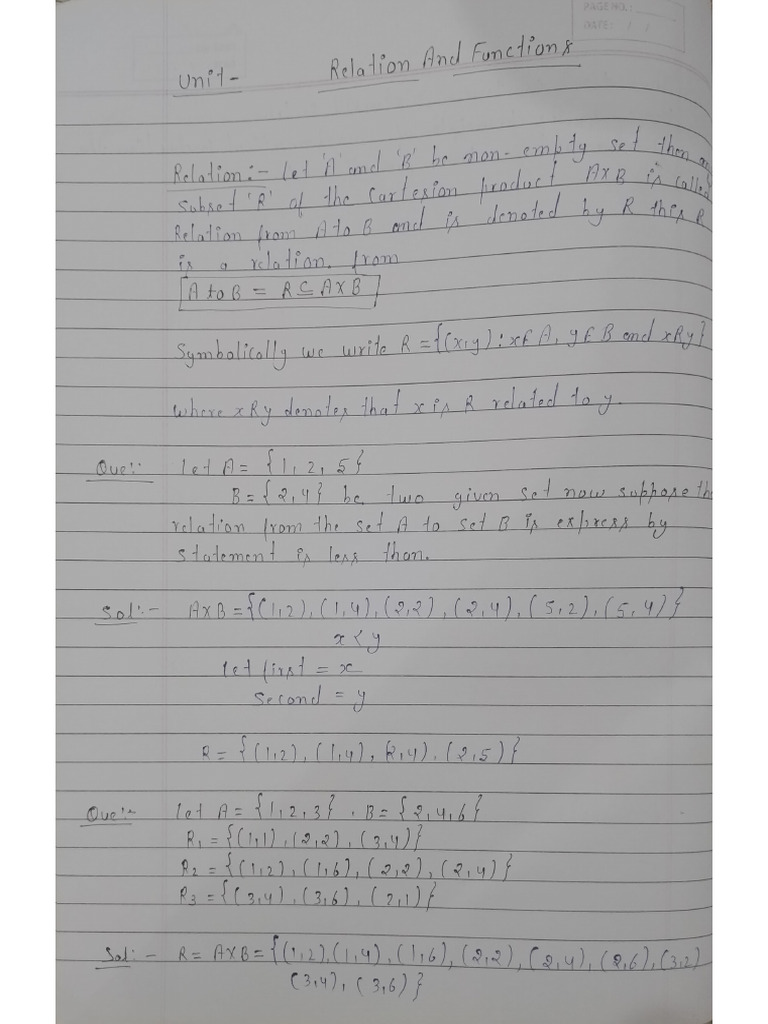 PAGE NO.:
DATE: / /
Unit- Relation And Functions
Relation:- Let 'A' and 'B' be non-empty set then
subset 'R' of the Cartesion product AXB is called
Relation from A to B and is denoted by R this R
is a relation. from
A to B = R ⊆ A X B
Symbolically we write R = {(x,y) : x ∈ A, y ∈ B and xRy}
where xRy denotes that x is R related to y.
Que:- Let A = {1, 2, 5}
B = {2,4} be two given set now suppose the
relation from the set A to set B is express by
statement is less than.
Sol:- AXB = {(1,2), (1,4), (2,2), (2,4), (5,2), (5,4)}
x < y
let first = x
second = y
R = {(1,2), (1,4), (2,4), (2,5)}
Que:- Let A = {1,2,3}, B = {2,4,6}
R1 = {(1,1), (2,2), (3,4)}
R2 = {(1,2), (1,6), (2,2), (2,4)}
R3 = {(3,4), (3,6), (2,1)}
Sol:- R = AXB = {(1,2), (1,4), (1,6), (2,2), (2,4), (2,6), (3,2)
(3,4), (3,6)}